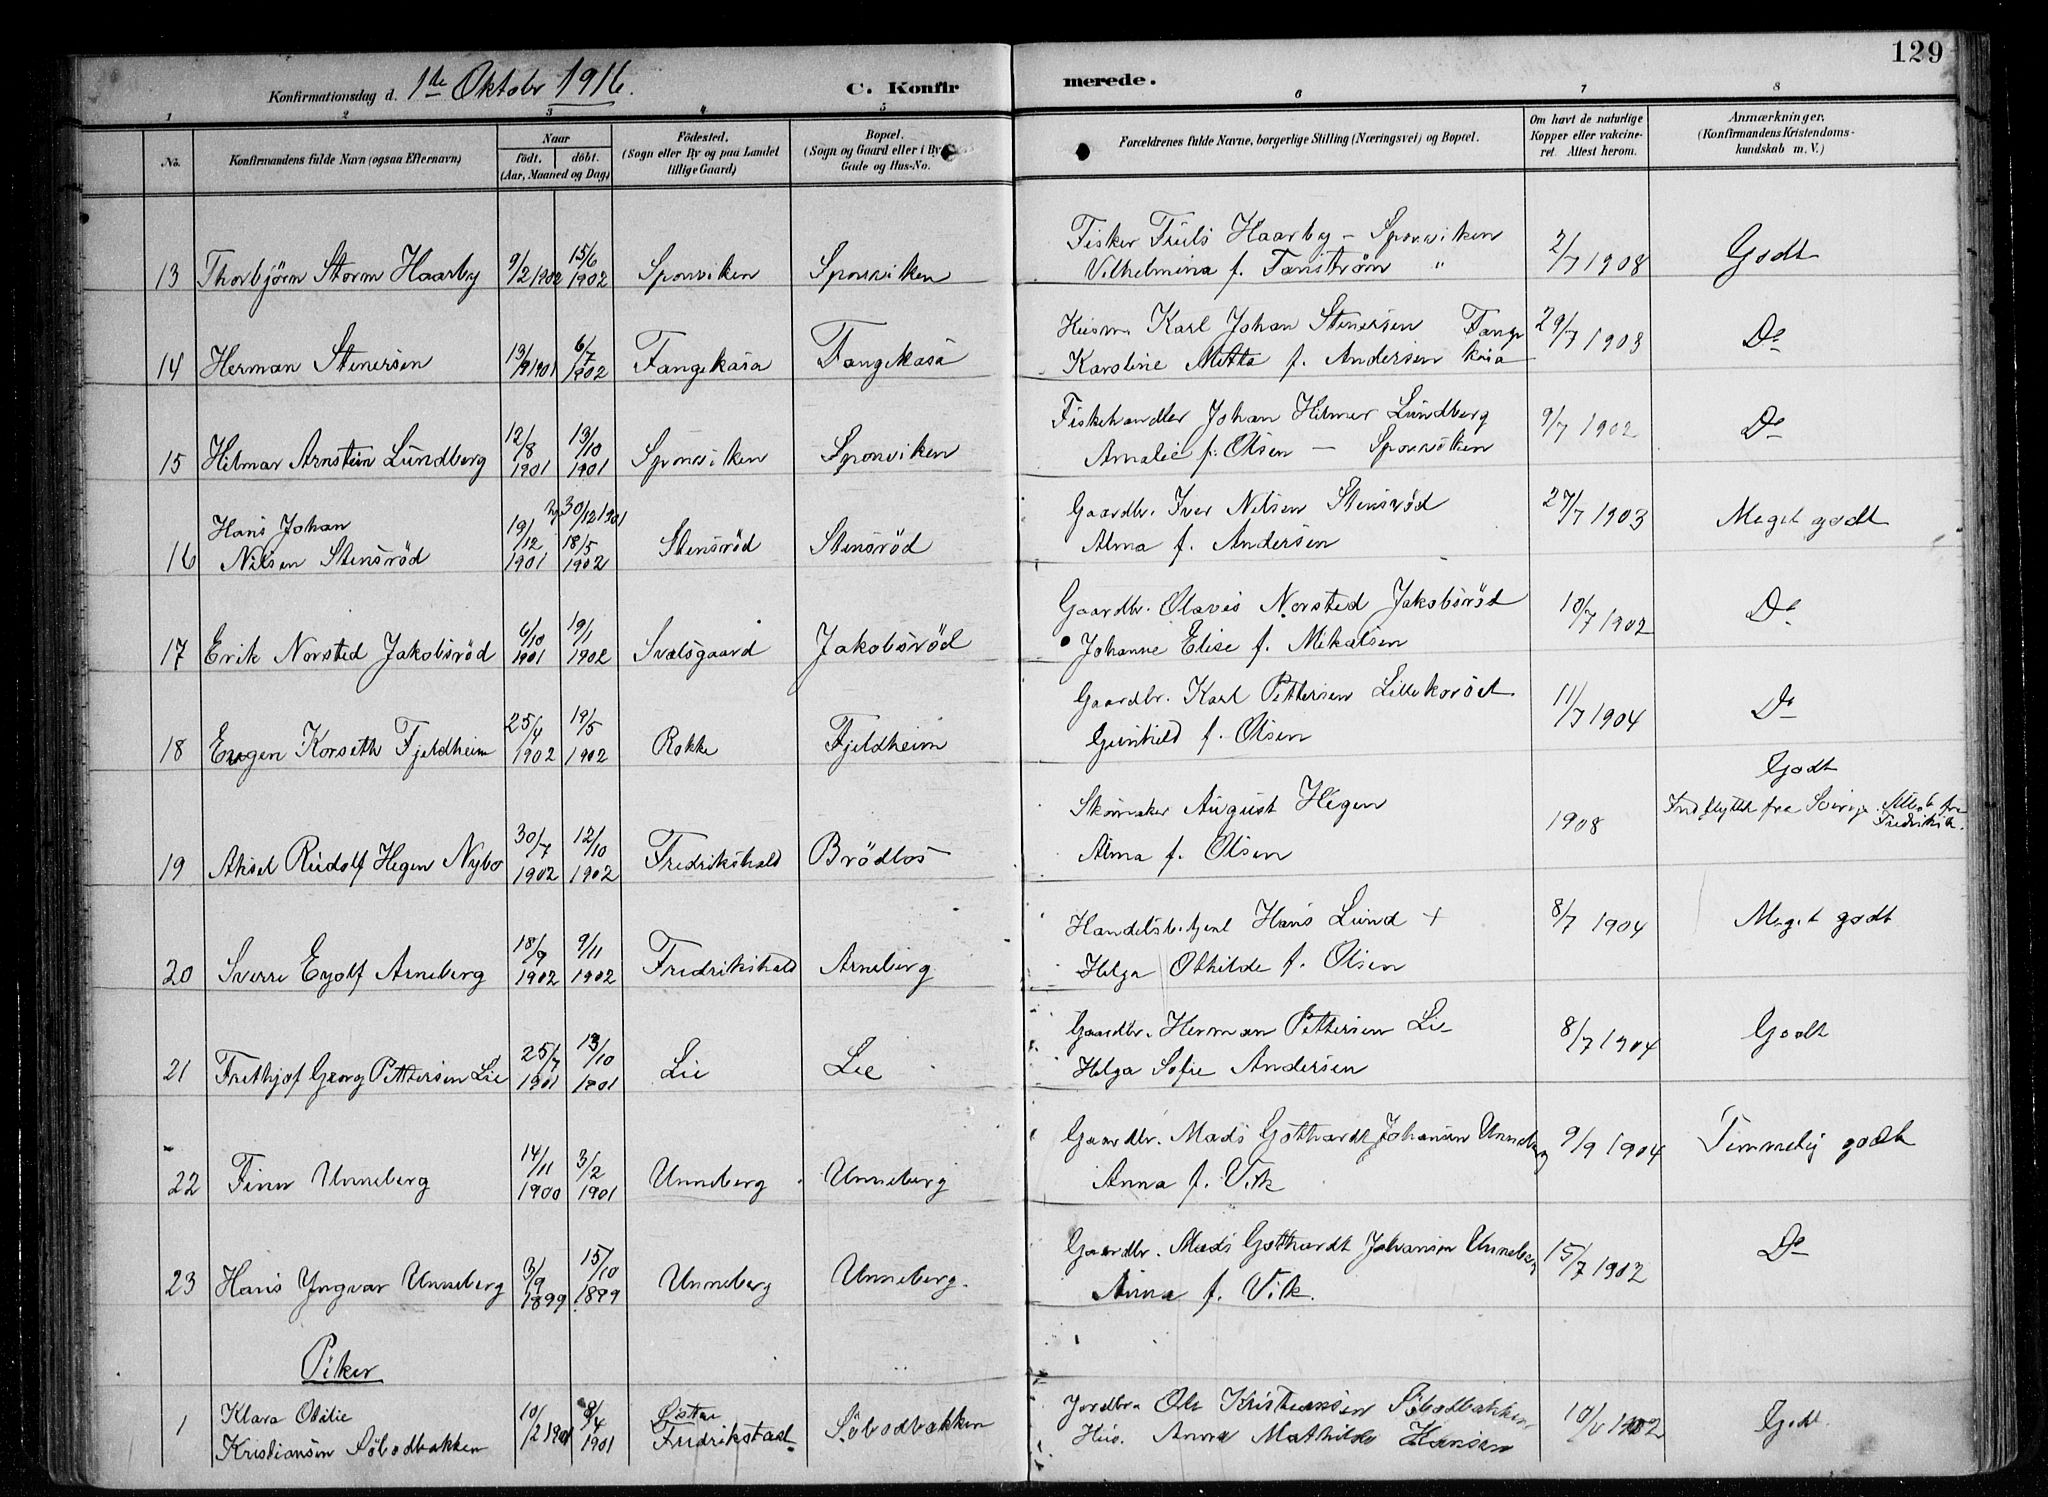 129
Konfirmationsdag d. 1ste Oktober 1916.
C. Konfirmerede.
1 2 3 4 5 6 7 8
No.
Konfirmandens fulde Navn (ogsaa Efternavn)
Naar
födt. döbt.
(Aar, Maaned og Dag)
Födested.
(Sogn eller By og paa Landet tillige Gaard)
Bopæl.
(Sogn og Gaard eller i By Gade og Hus-No.
Forældrenes fulde Navne, borgerlige Stilling (Næringsvei) og Bopæl.
Om havt de naturlige Kopper eller vakcineret. Attest herom.
Anmærkninger.
(Konfirmandens Kristendomskundskab m. V.)
13 Thorbjörn Storm Haarby 9/2 1902 15/6 1902 Sponviken Sponviken
Fisker Truls Haarby - Sponviken
Vilhelmina f. Tanström " 2/7 1908 Godt
14 Herman Stenersen 13/9 1901 6/7 1902 Fangekasa Fangekasa
Husm. Karl Johan Stenersen Fange
Karoline Metta f. Andersen kasa 29/7 1903 Do
15 Hilmar Arnstein Lundberg 12/8 1901 13/10 1901 Sponviken Sponviken
Fiskehandler Johan Hilmer Lundberg
Amalie f. Olsen - Sponviken 9/7 1902 Do
16 Hans Johan
Nilsen Stensröd 19/12 1901 30/12 1901 18/5 1902 Stensröd Stensröd
Gaardbr. Iver Nilsen Stensröd
Alma f. Andersen 27/7 1903 Meget godt
17 Erik Norsted Jakobsröd 6/10 1901 19/1 1902 Svalsgaard Jakobsröd
Gaardbr. Olavis Norsted Jakobsröd
Johanne Elise f. Mikalsen 10/7 1902 Do
18 Eugen Korseth Fjeldheim 25/4 1902 19/5 1902 Rokke Fjeldheim
Gaardbr. Karl Pettersen Lillekoröd
Gunhild f. Olsen 11/7 1904 Do
19 Aksel Rudolf Hegen Nybo 30/7 1902 12/10 1902 Fredrikshald Brödlös
Skomaker August Hegen
Alma f. Olsen 1908 Godt
Indflyttet fra Sverige. Attest fra Fredriksh.
20 Sverre Eyolf Arneberg 18/9 1902 9/11 1902 Fredrikshald Arneberg
Handelsbetjent Hans Lund +
Helga Othilde f. Olsen 8/7 1904 Meget godt
21 Frethjof Georg Pettersen Lie 25/7 1901 13/10 1901 Lie Lie
Gaardbr. Herman Pettersen Lie
Helga Sofie Andersen 8/7 1904 Godt
22 Finn Unneberg 14/11 1900 3/2 1901 Unneberg Unneberg
Gaardbr. Mads Gotthardt Johansen Unneberg
Anna f. Vik 9/9 1904 Temmelig godt
23 Hans Yngvar Unneberg 3/9 1899 15/10 1899 Unneberg Unneberg.
Gaardbr. Mads Gotthardt Johansen Unneberg
Anna f. Vik. 15/7 1902 Do
Piker
1 Klara Otilie
Kristiansen Söbodbakken 10/2 1901 8/4 1901 Østre Fredrikstad Söbodbakken
Jordbr. Ole Kristiansen Söbodbakken
Hus. Anna Mathilde Hansen 1902 Godt.